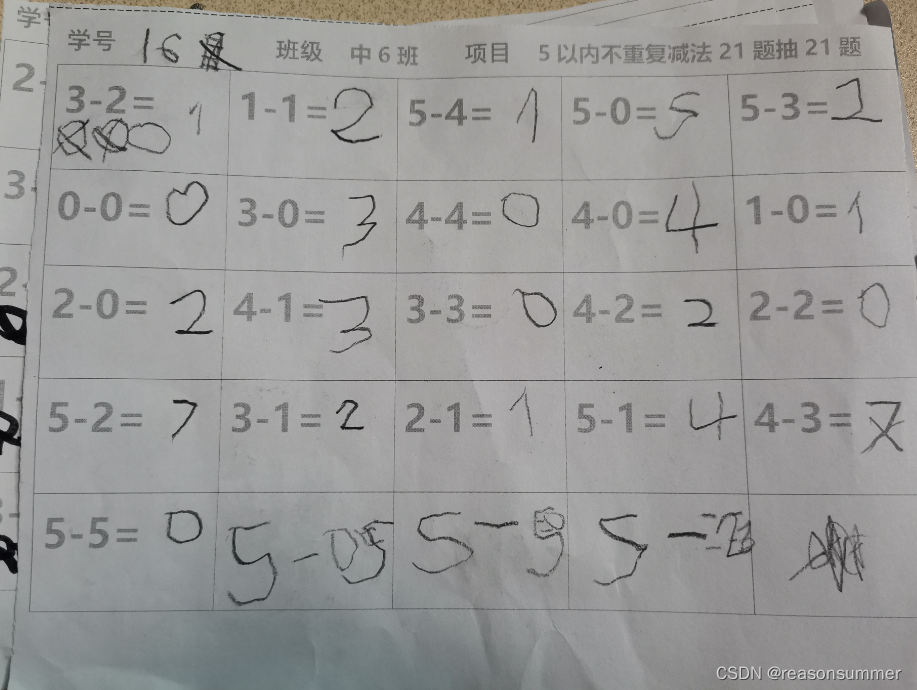 学号 16 班级 中6班 项目 5以内不重复减法21题抽21题
3-2= 1 1-1=2 5-4= 1 5-0=5 5-3=2
0-0= 0 3-0= 3 4-4=0 4-0=4 1-0=1
2-0= 2 4-1=3 3-3= 0 4-2= 2 2-2= 0
5-2= 7 3-1= 2 2-1= 1 5-1= 4 4-3=
5-5= 0 5-0 5- 5-
2-
3-
2-
CSDN @reasonsummer